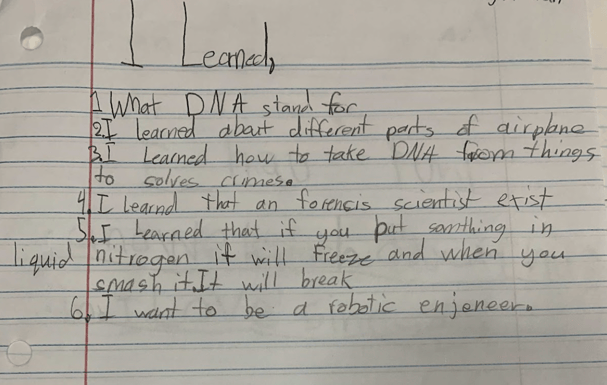 I Learned,
1. What DNA stand for
2. I learned about different parts of airplane
3. I Learned how to take DNA from things
to solves crimese.
4. I learnd that an forensis scientist exist
5. I Learned that if you put somthing in
liquid nitrogen it will Freeze and when you
smash it. It will break
6. I want to be a robotic enjeneer.